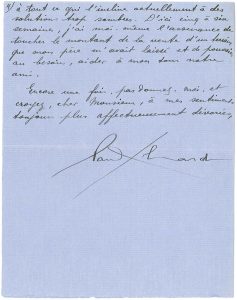 à tout ce qui l'incline actuellement à des
solution trop sombres. D'ici cinq à six
semaines, j'ai moi-même l'assurance de
toucher le montant de la vente d'un terrain
que mon père m'avait laissé et de pouvoir,
au besoin, aider à mon tour notre
ami.
Encore une fois, pardonnez-moi, et
croyez, cher Monsieur, à mes sentiments
toujours plus affectueusement dévoués,
Paul